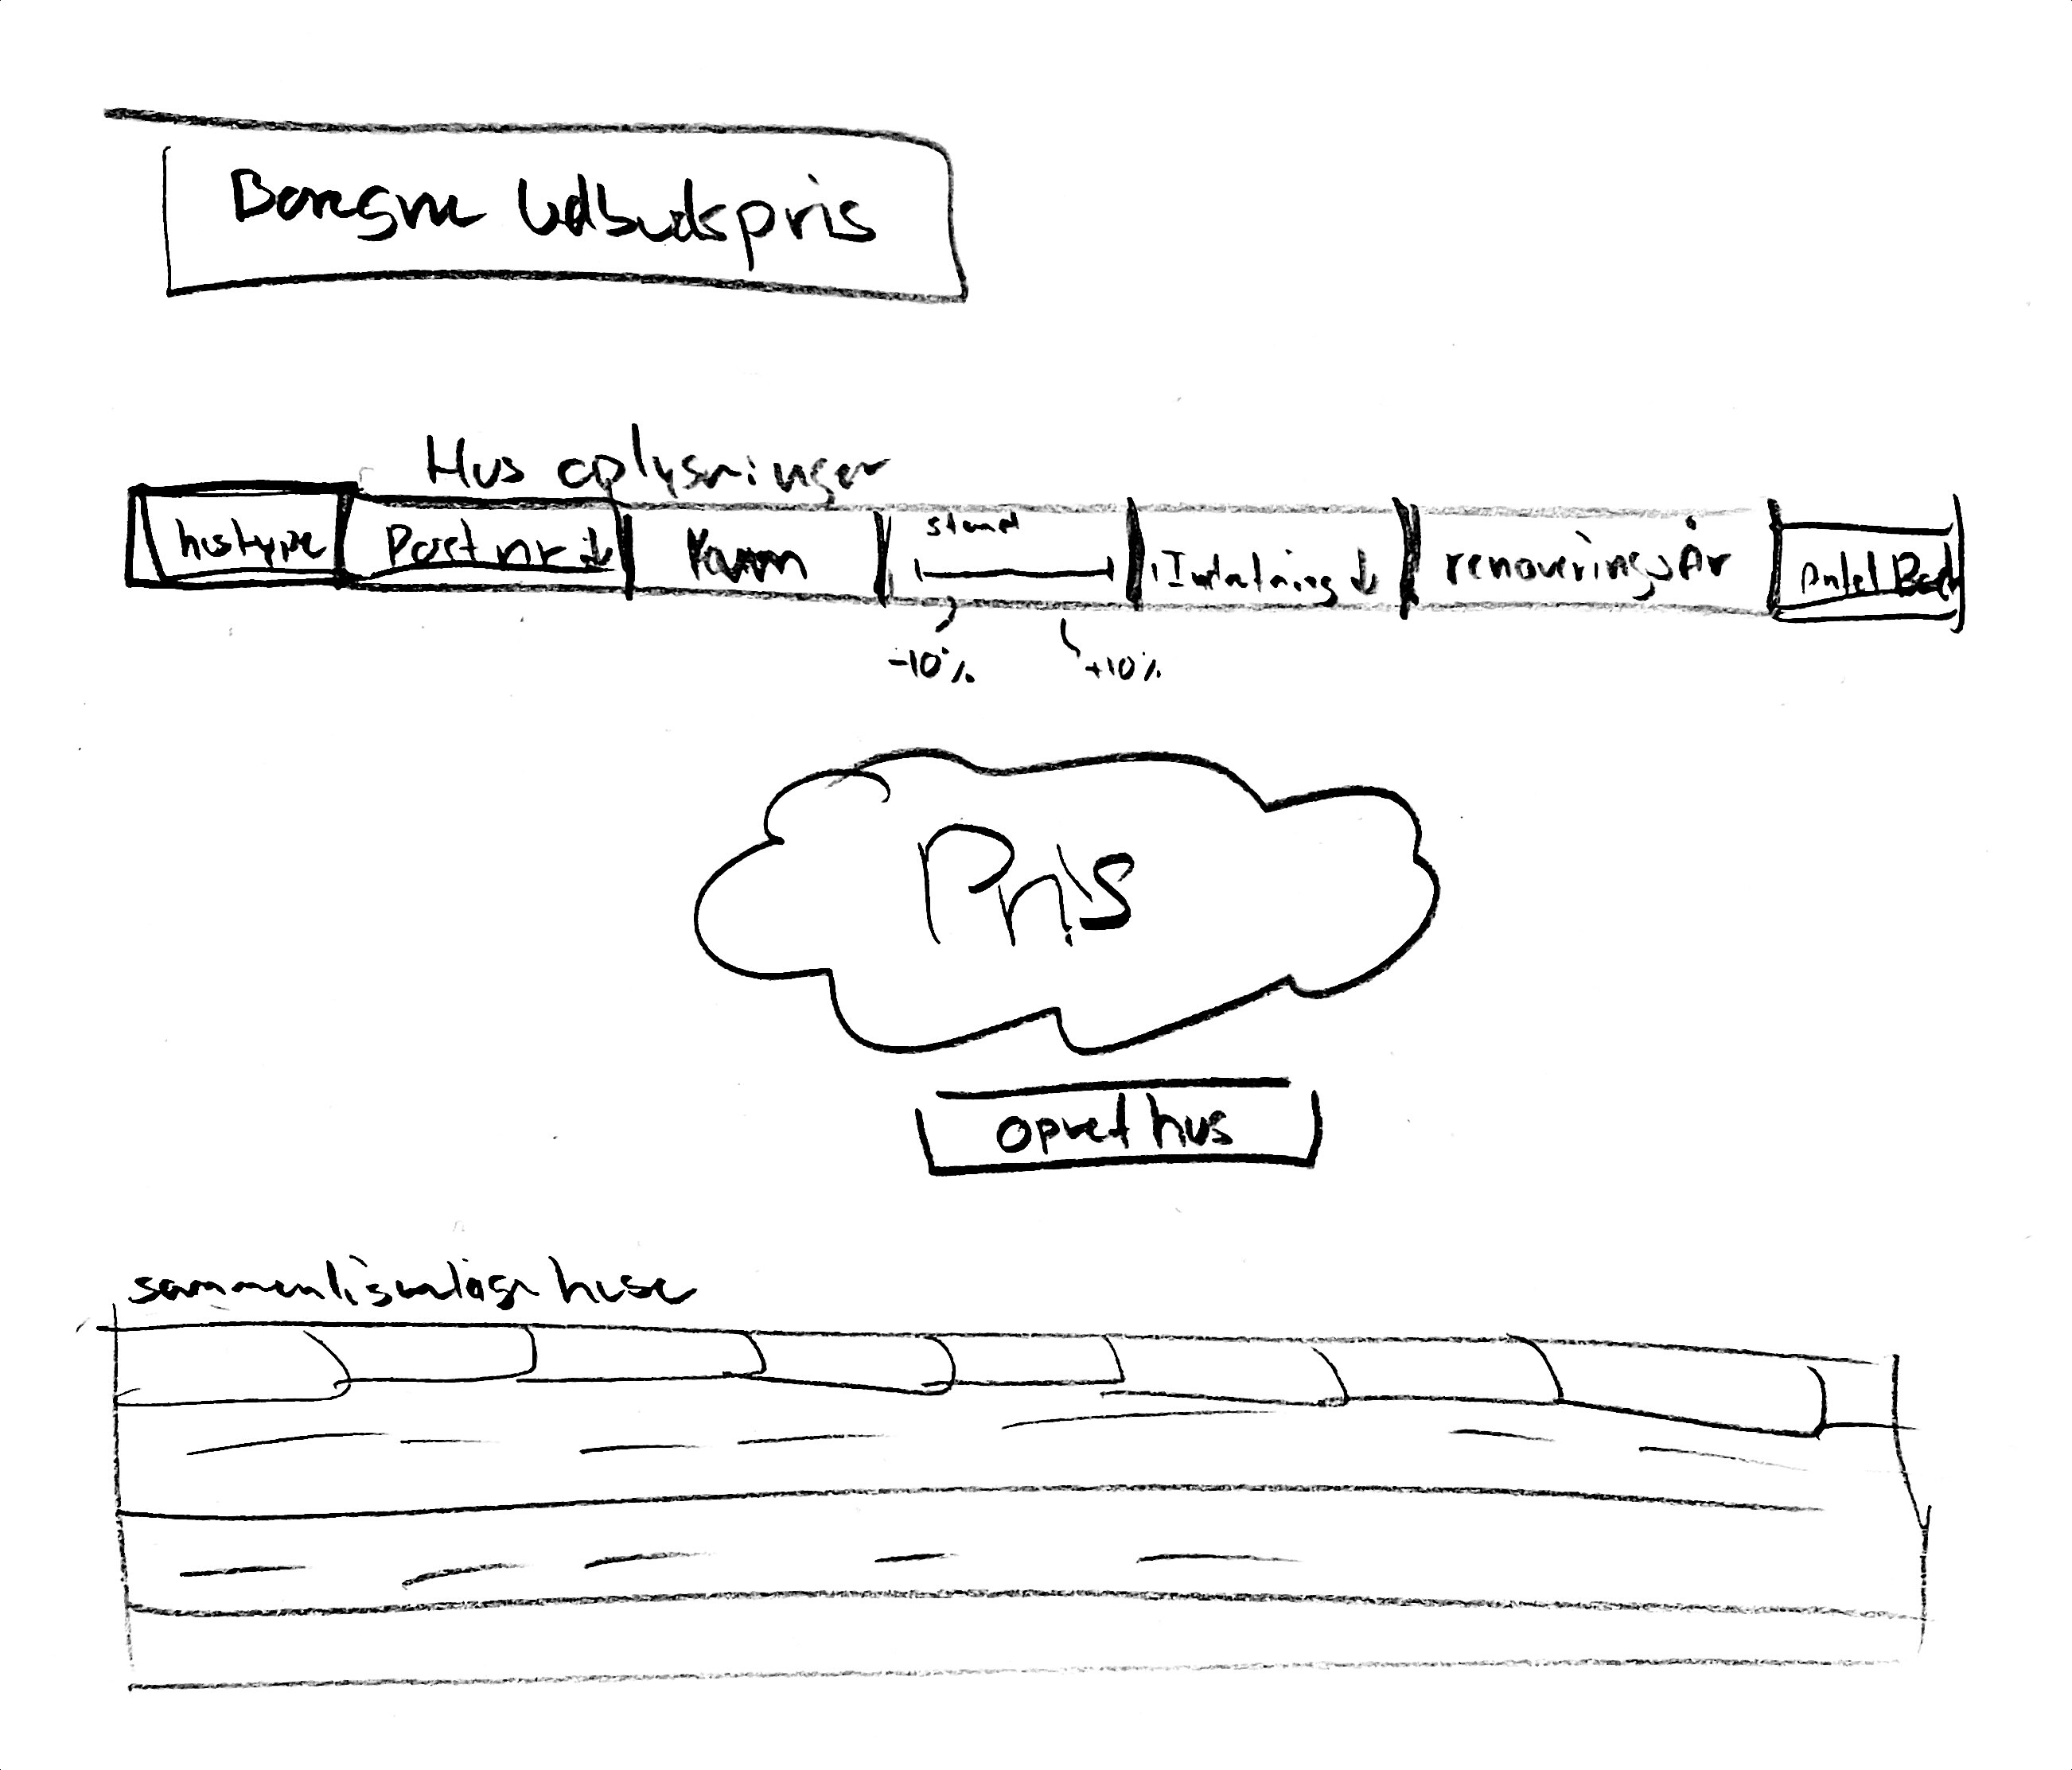 Beregne Udbudspris
Hus oplysninger
hustype Post nr ↓ Kvm stand Indretning ↓ renoverings År Antal Bad
-10% +10%
Pris
opret hus
sammenlignlige huse